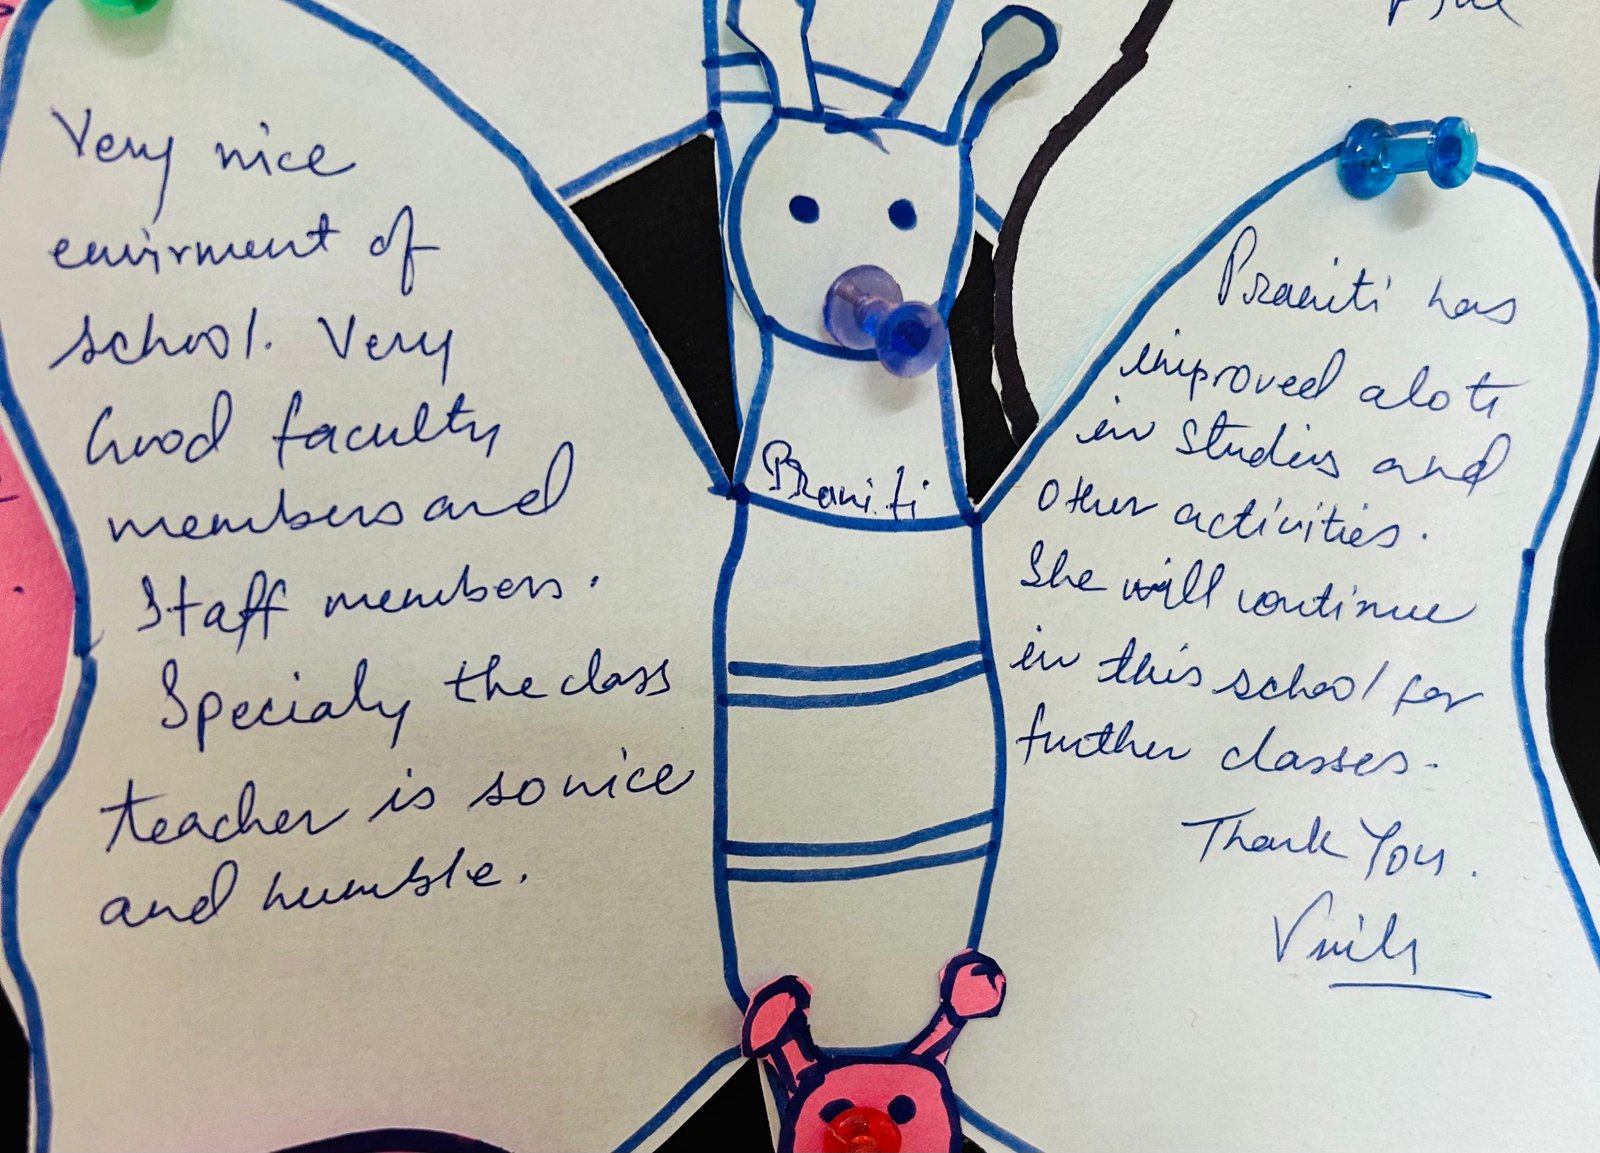 Very nice
envirment of
school. Very
Good faculty
members and
Staff members.
Specialy the class
teacher is so nice
and humble.
Praniti
Praniti has
improved alot
in studies and
other activities.
She will continue
in this school for
further classes.
Thank You.